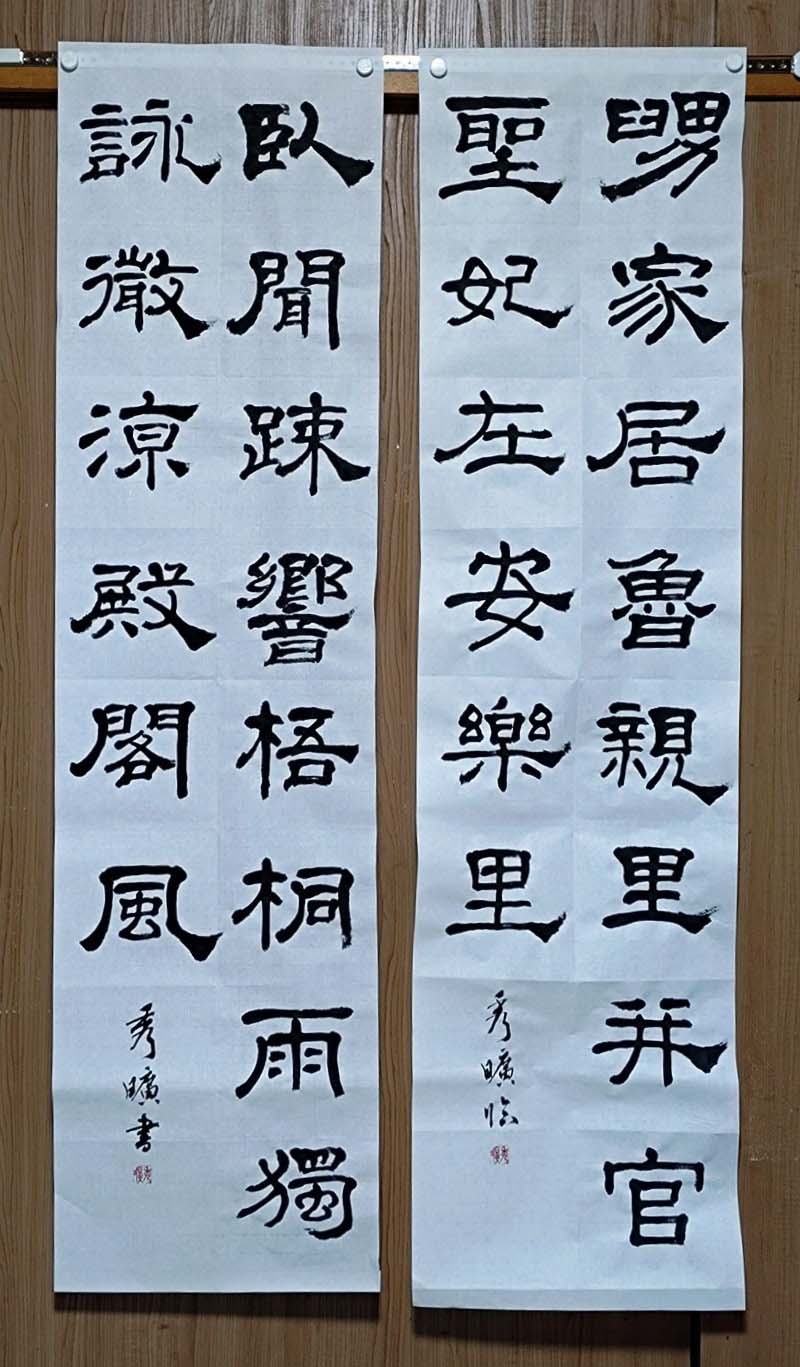 舅家居魯親里并官
聖妃在安樂里
秀曠临
臥聞踈響梧桐雨獨
詠微涼殿閣風
秀曠書